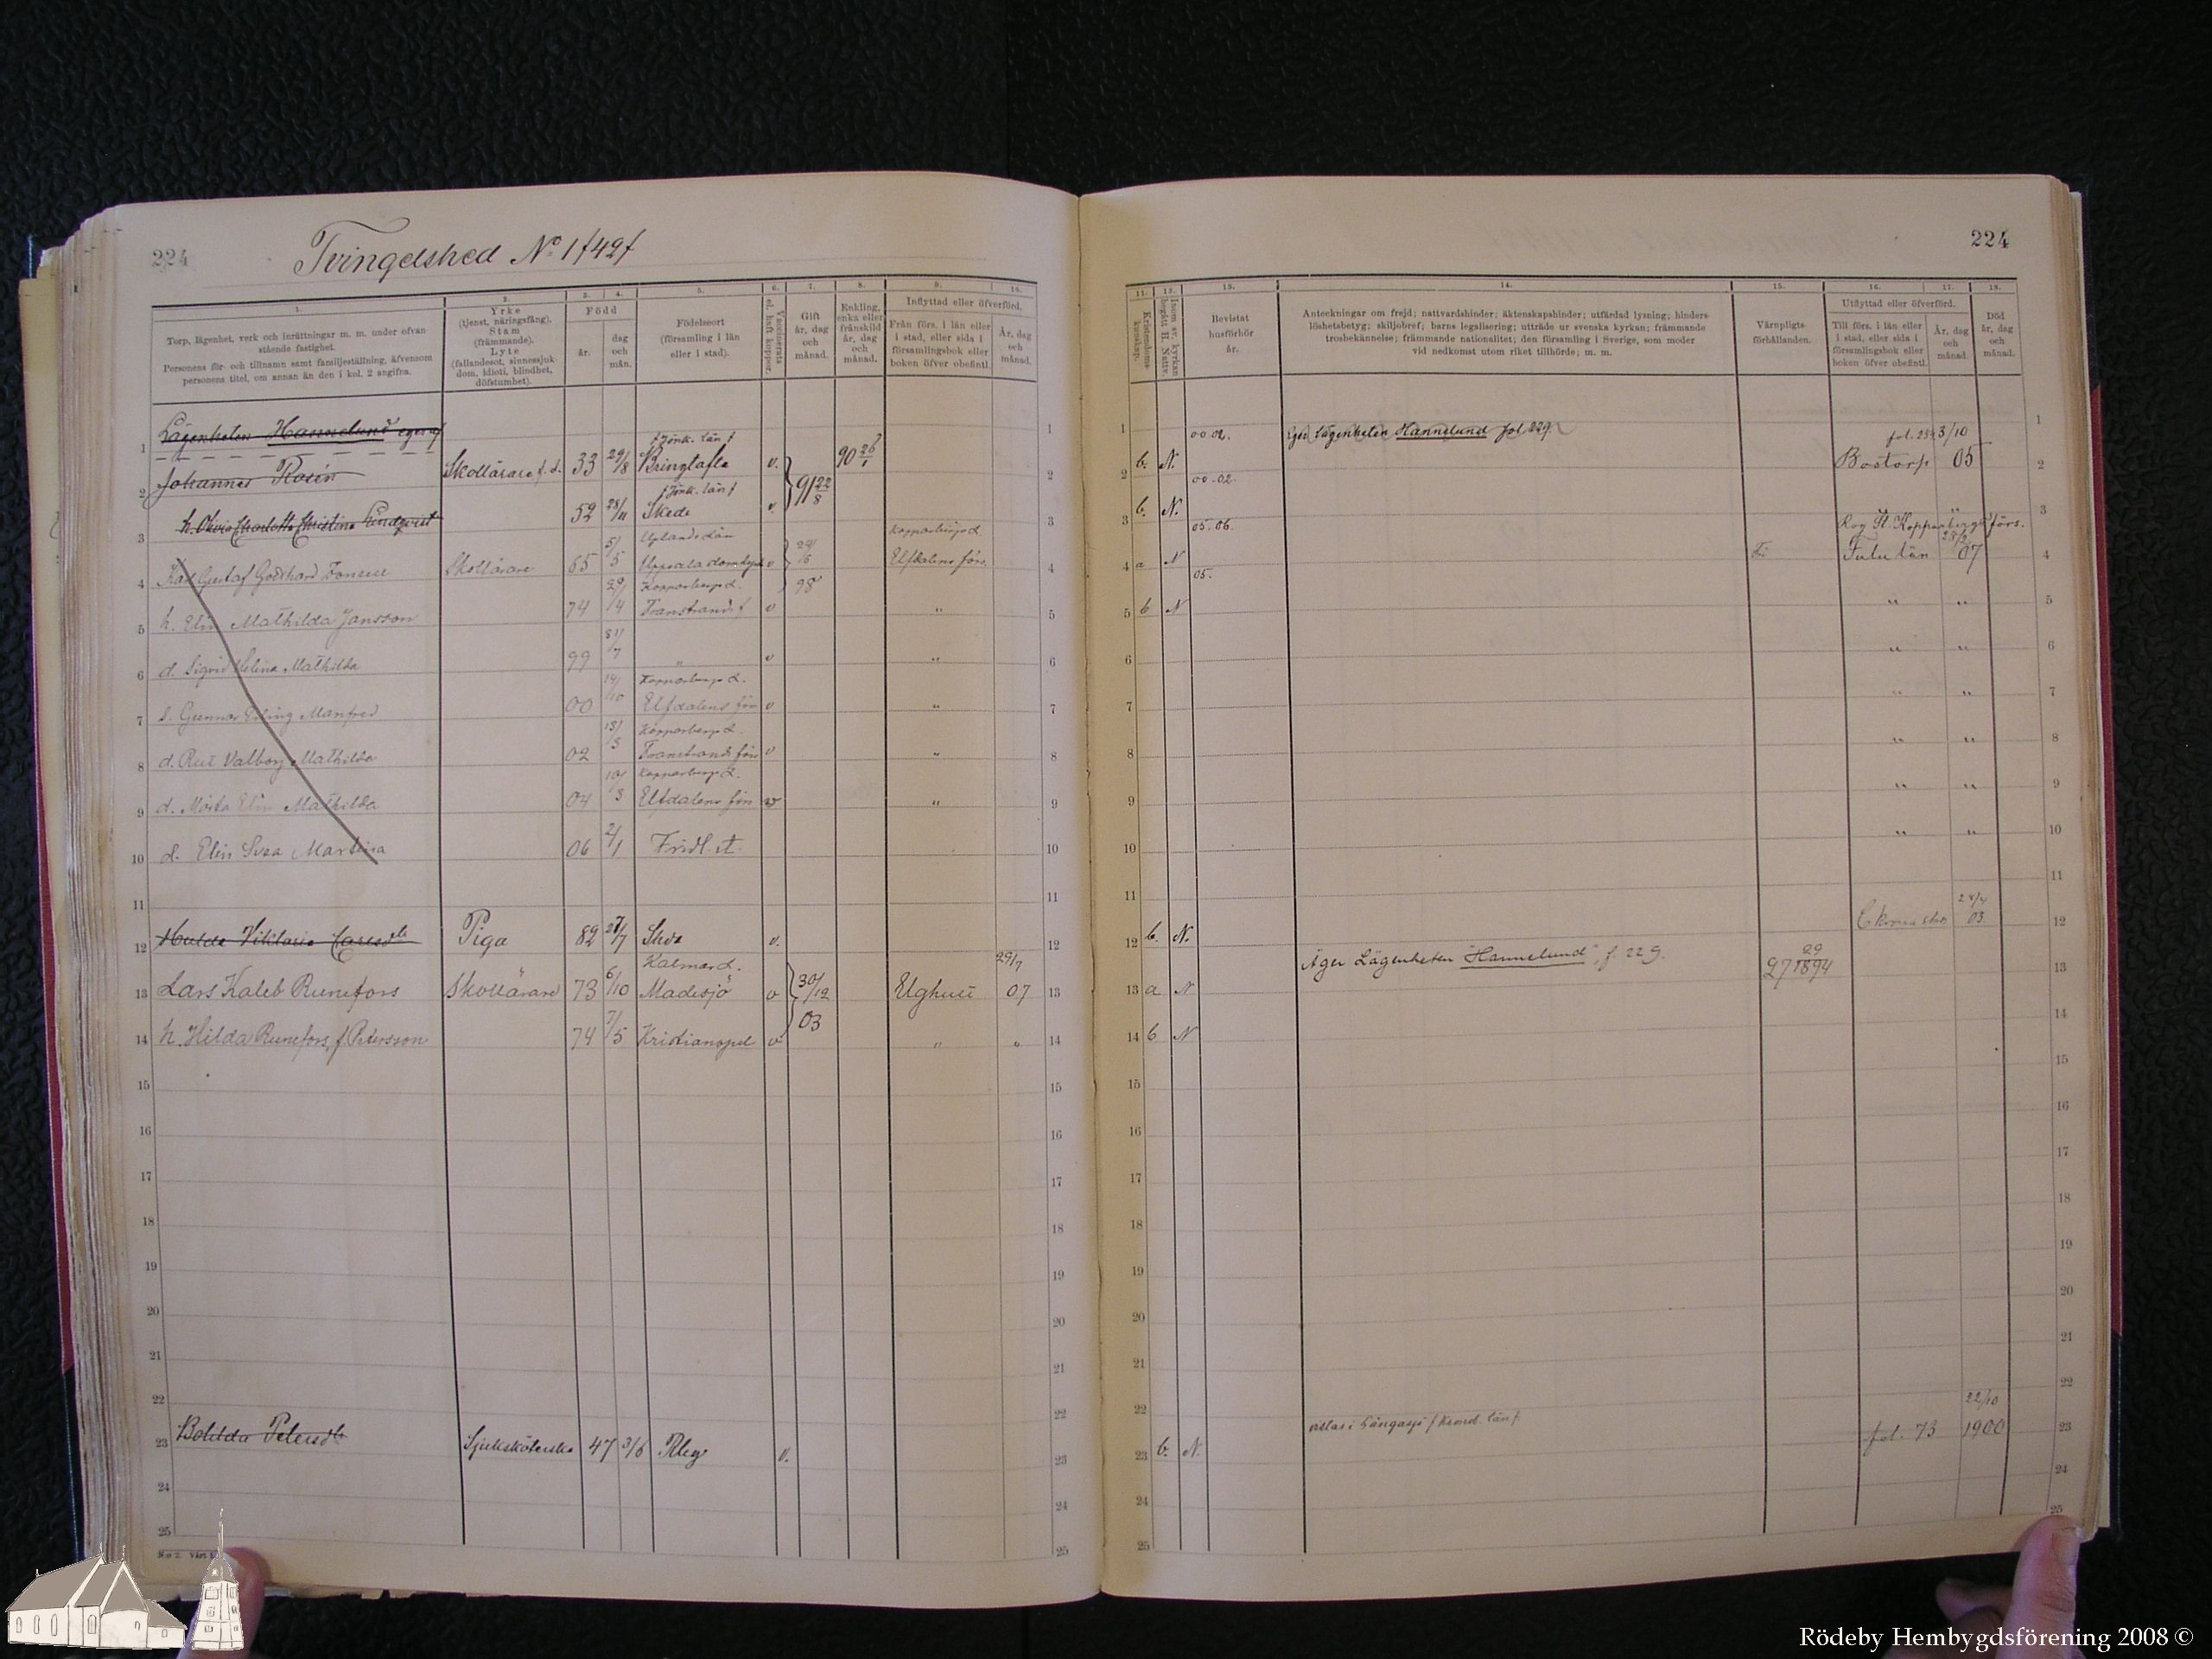 224
Tvingelshed No 1 /42/
1.
Torp, lägenhet, verk och inrättningar m. m. under ofvan stående fastighet.
Personens för- och tillnamn samt familjeställning, äfvensom personens titel, om annan än den i kol. 2 angifna.
2.
Yrke (tjenst, näringsfång). Stam (främmande). Lyte (fallandesot, sinnessjukdom, idioti, blindhet, döfstumhet).
3. 4.
Född
år. dag och mån.
5.
Födelseort (församling i län eller i stad).
6.
Vaccinerats el. haft koppor.
7.
Gift år, dag och månad.
8.
Enkling, enka eller frånskild år, dag och månad.
9. 10.
Inflyttad eller öfverförd.
Från förs. i län eller i stad, eller sida i församlingsbok eller boken öfver obefintl.
År, dag och månad.
1 Lägenheten Hannelund eges af 1
2 Johannes Rosén Skollärare f. d. 33 29/8 /Jönk. län/ Bringtofta v. 91 22/8 90 26/1 2
3 h. Olivia Charlotta Christina Lindqvist 52 28/11 /Jönk. län/ Skede v. 3
4 Karl Gustaf Godthard Fonsell Skollärare 65 5/5 Uplands Län Uppsala domkyrk v 24/5 98 Kopparbergs L. Elfdalens förs. 4
5 h. Elin Mathilda Jansson 74 29/4 Kopparbergs L. Transtrands f v " 5
6 d. Sigrid Helena Mathilda 99 31/7 " v " 6
7 s. Gunnar Erling Manfred 00 14/10 Kopparbergs L. Elfdalens förs v " 7
8 d. Rut Valborg Mathilda 02 13/3 Kopparbergs L. Transtrands förs v " 8
9 d. Märta Elin Mathilda 04 10/3 Kopparbergs L. Elfdalens förs v " 9
10 d. Elin Svea Martina 06 2/1 Fridl. st. 10
11
12 Hulda Viktoria Carlsdtr Piga 82 27/7 v. 12
13 Lars Kaleb Runefors Skollärare 73 6/10 Kalmar L. Madesjö v 30/12 03 Elghult 29/7 07 13
14 h. Hilda Runefors, f. Petersson 74 7/5 Kristianopel v " " 14
15 15
16 16
17 17
18 18
19 19
20 20
21 21
22 22
23 Petersdtr Sjuksköterska 47 3/6 v.
24 24
25 25
224
11.
Kristendomskunskap.
12.
Inom sv. kyrkan begått H. Nattv.
13.
Bevistat husförhör år.
14.
Anteckningar om frejd; nattvardshinder; äktenskapshinder; utfärdad lysning; hinderslöshetsbetyg; skiljobref; barns legalisering; utträde ur svenska kyrkan; främmande trosbekännelse; främmande nationalitet; den församling i Sverige, som moder vid nedkomst utom riket tillhörde; m. m.
15.
Värnpligtsförhållanden.
16. 17.
Utflyttad eller öfverförd.
Till förs. i län eller i stad, eller sida i församlingsbok eller boken öfver obefintl.
År, dag och månad.
18.
Död år, dag och månad.
1 1
2 b. N. 00.02. Eger Lägenheten Hannelund fol. 229 Bostorp 3/10 05 2
3 b. N. 00.02. " " 3
4 a N 05.06. St. Kopparbergs förs. Falu län 28/2 07 4
5 b N 05. " " 5
6 " " 6
7 " " 7
8 " " 8
9 " " 9
10 " " 10
11 11
12 b. N. 03 12
13 a N Äger Lägenheten "Hannelund", f. 229. 27 29/1894 13
14 b N 14
15 15
16 16
17 17
18 18
19 19
20 20
21 21
22 22
23 b. N. vistas i Långasjö /Kronob. län/. fol. 73 22/10 1900 23
24 24
25 25
Rödeby Hembygdsförening 2008 ©